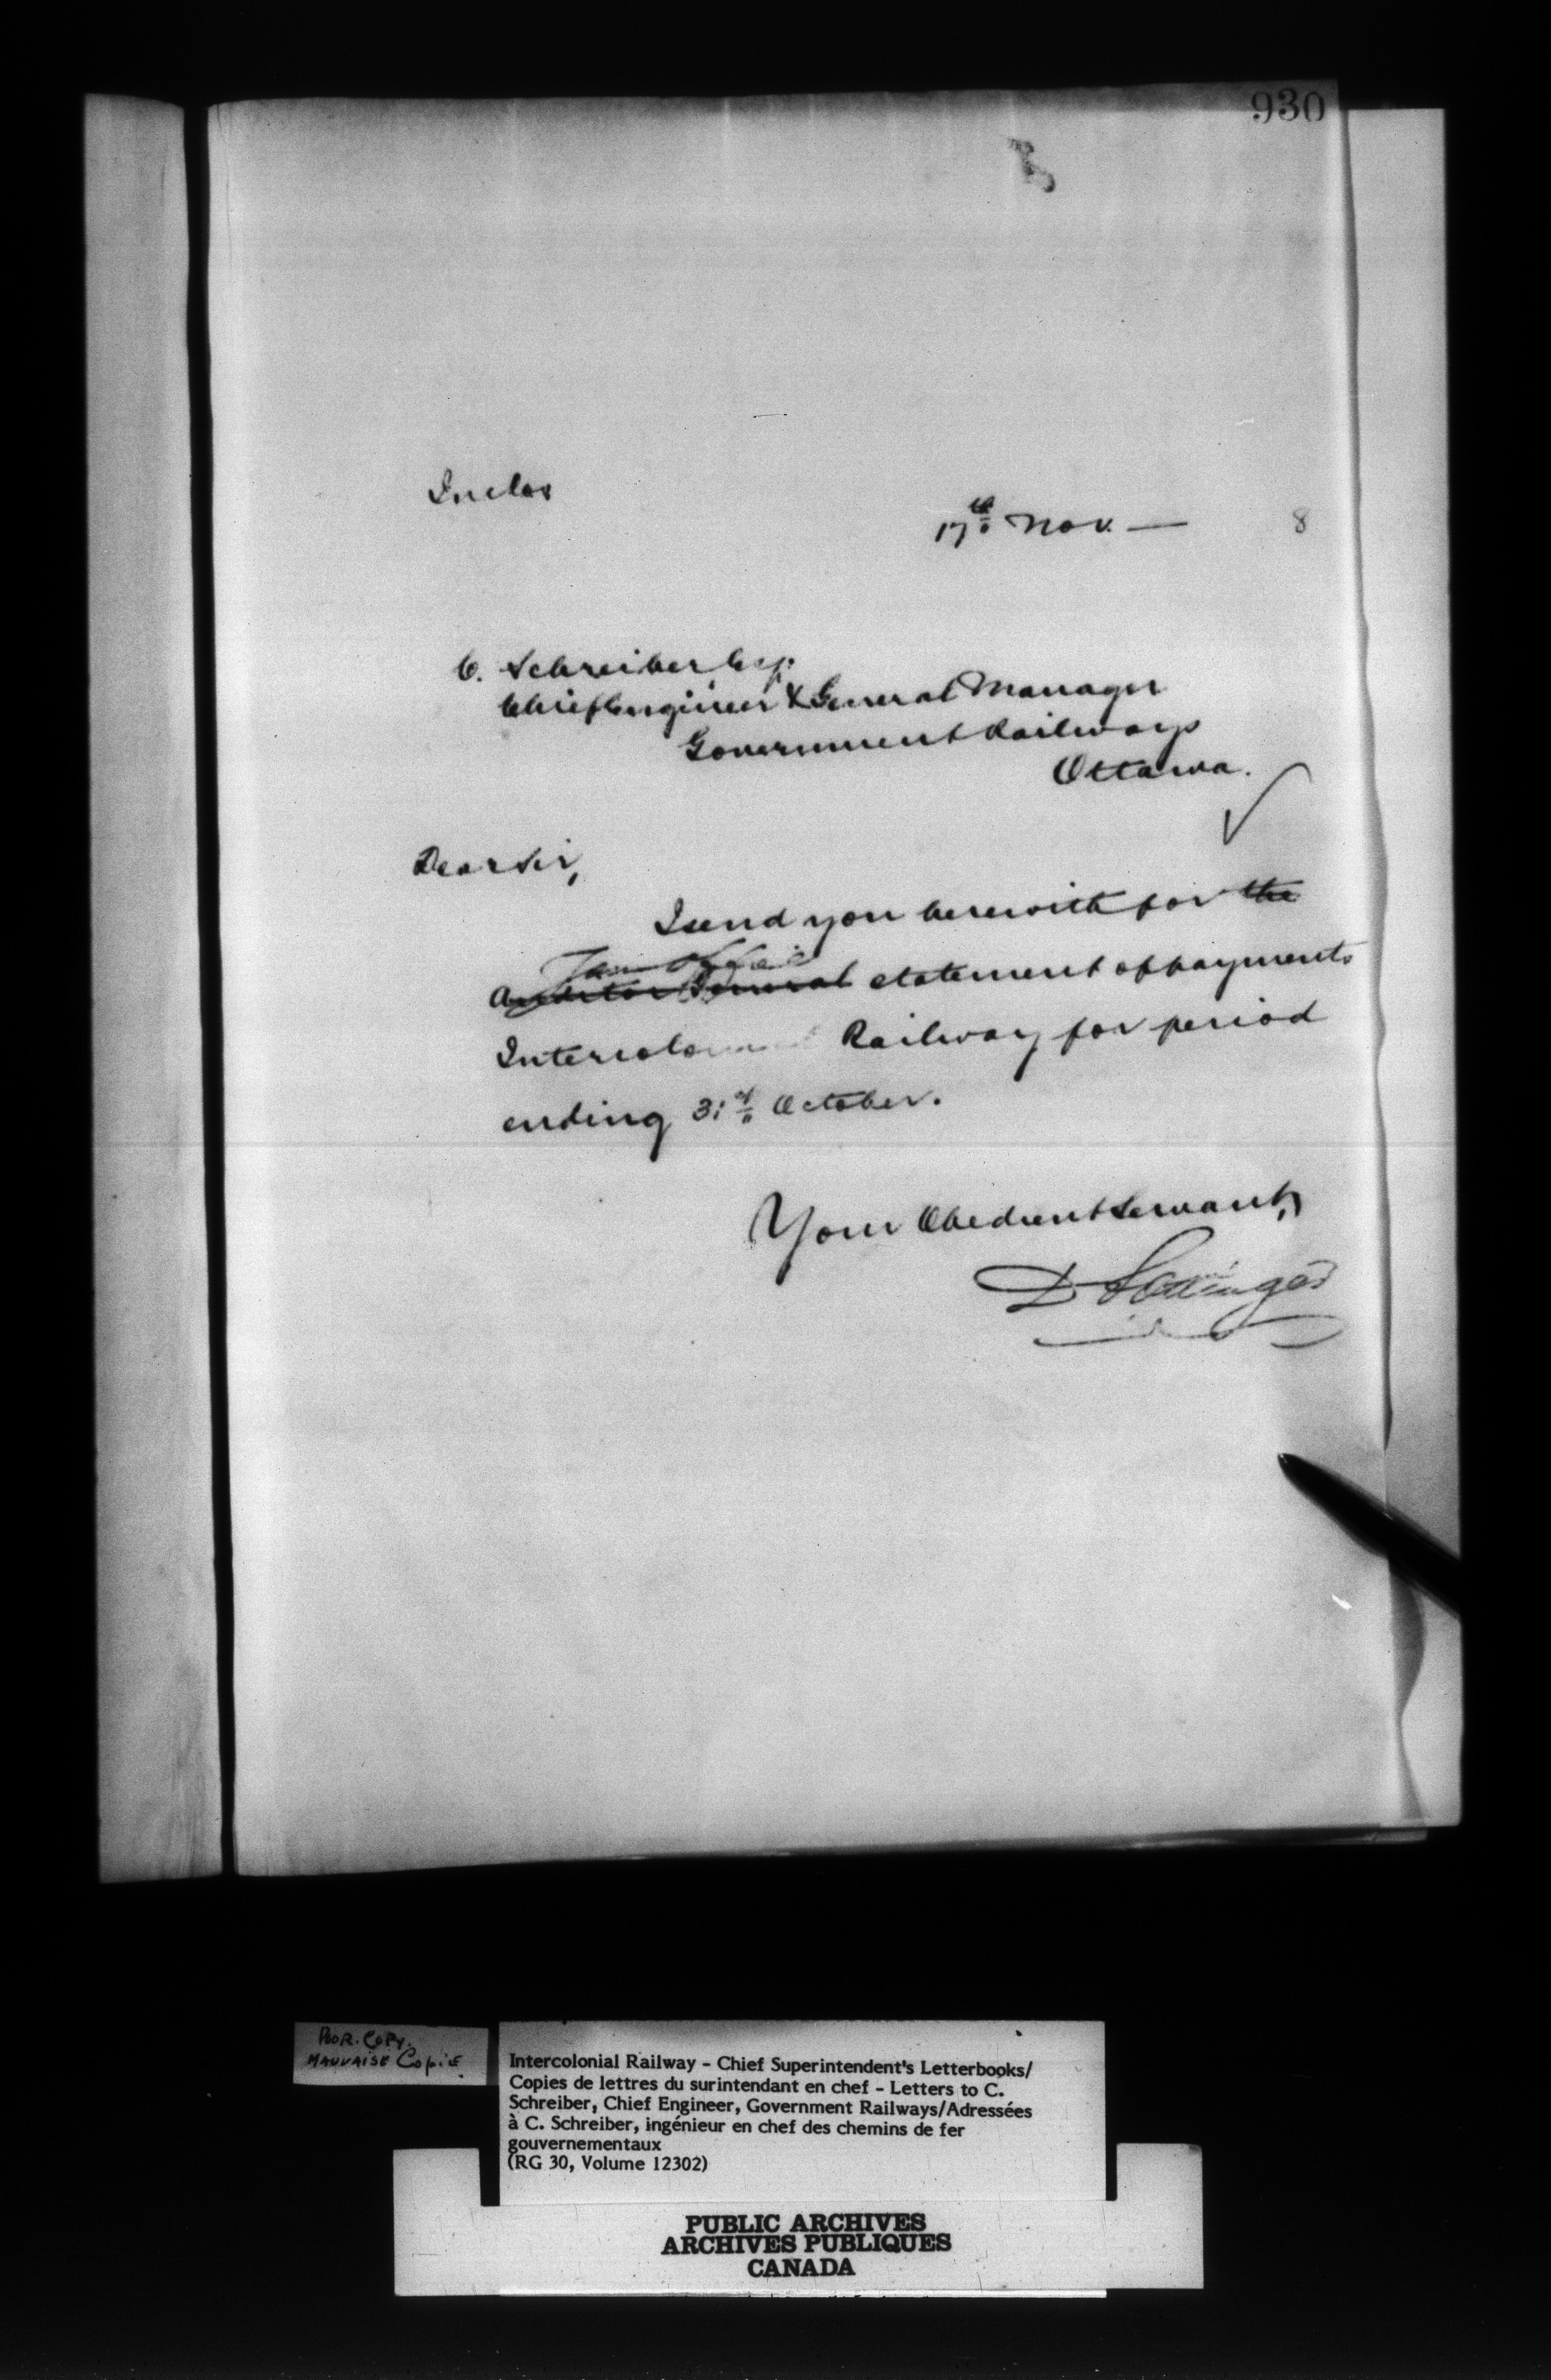 930
Inclos
17th Nov. — 8
C. Schreiber Esq.
Chief Engineer & General Manager
Government Railways
Ottawa.
Dear Sir,
I send you herewith for the
your office
Auditor General statement of payments
Intercolonial Railway for period
ending 31st October.
Your Obedient Servant,
D Pottinger
POOR. COPY.
MAUVAISE COPIE.
Intercolonial Railway - Chief Superintendent's Letterbooks/
Copies de lettres du surintendant en chef - Letters to C.
Schreiber, Chief Engineer, Government Railways/Adressées
à C. Schreiber, ingénieur en chef des chemins de fer
gouvernementaux
(RG 30, Volume 12302)
PUBLIC ARCHIVES
ARCHIVES PUBLIQUES
CANADA